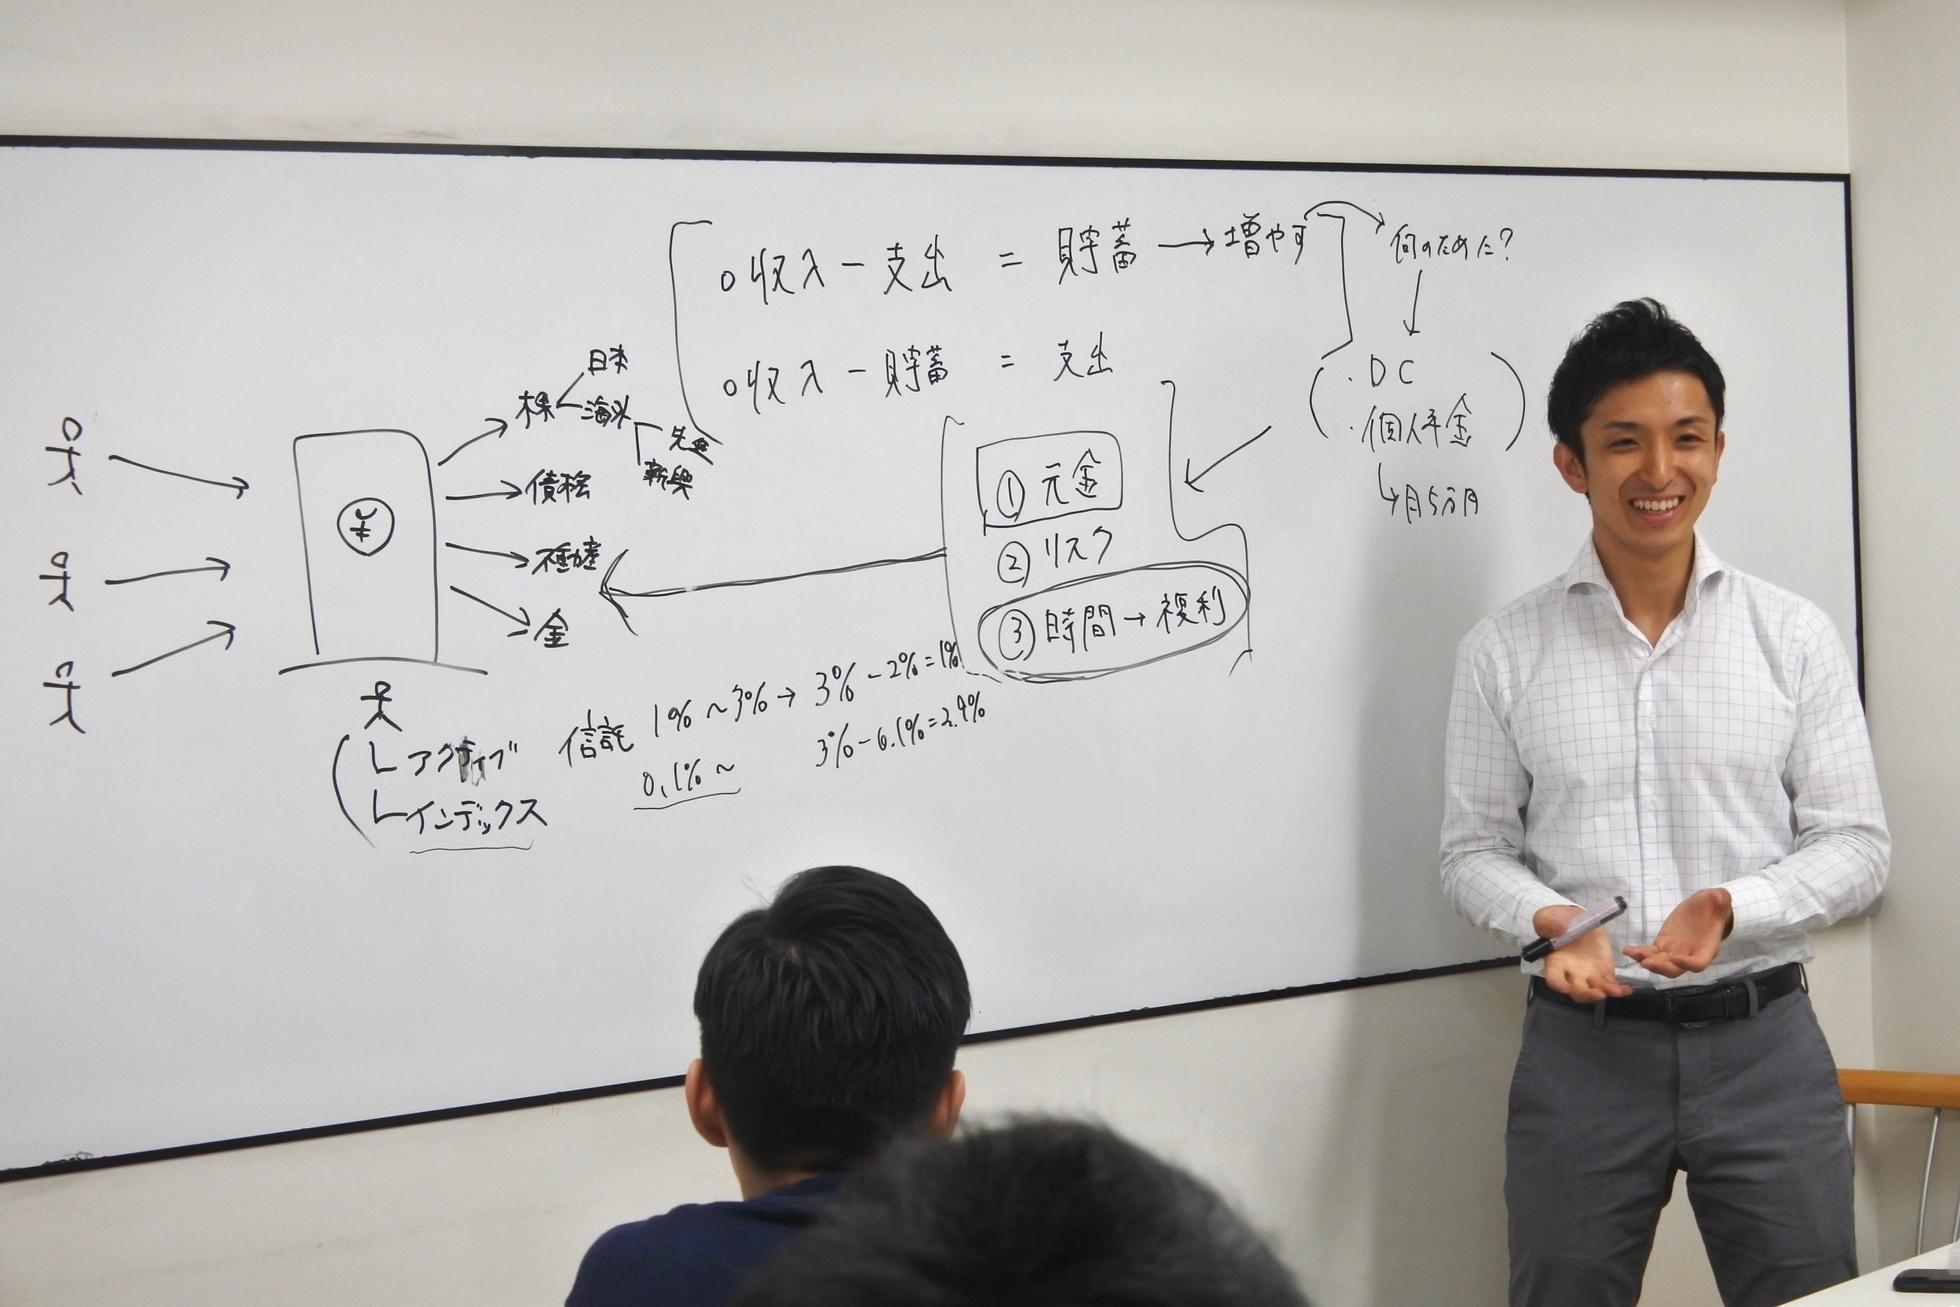 ○収入 − 支出 = 貯蓄 → 増やす
何のために?
○収入 − 貯蓄 = 支出
・DC
・個人年金
月5万円
① 元金
② リスク
③ 時間 → 複利
¥
株
日本
海外
先進
新興
債権
不動産
金
アクティブ 信託 1%~3% → 3% − 2% = 1%
インデックス 0.1%~ 3% − 0.1% = 2.9%